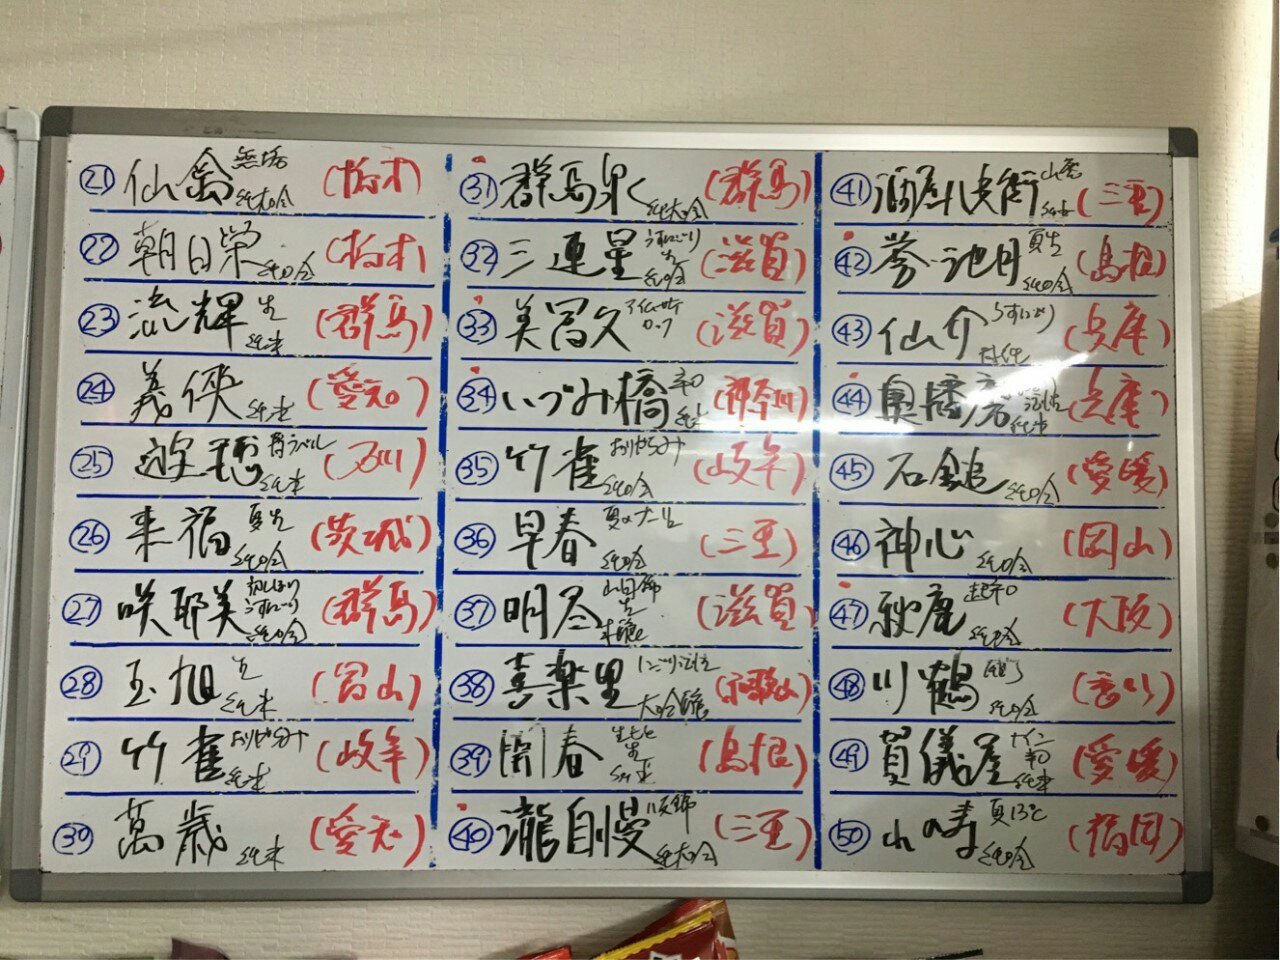 ㉑ 仙禽 無垢 純大吟 (栃木)
㉒ 朝日榮 純吟 (栃木)
㉓ 流輝 生 純米 (群馬)
㉔ 義侠 純米 (愛知)
㉕ 遊穂 純米 (石川)
㉖ 来福 夏生 純吟 (茨城)
㉗ 咲耶美 初しぼり うすにごり 純吟 (群馬)
㉘ 玉旭 生 純米 (富山)
㉙ 竹雀 おりがらみ 純米 (岐阜)
㉚ 萬歳 純米 (愛知)
㉛ 群馬泉 純大吟 (群馬)
㉜ 三連星 うすにごり 生 純吟 (滋賀)
㉝ 美冨久 (滋賀)
㉞ いづみ橋 辛口 純米 (神奈川)
㉟ 竹雀 おりがらみ 純吟 (岐阜)
㊱ 早春 純吟 (三重)
㊲ 明尽 山田錦 生 (滋賀)
㊳ 喜楽里 大吟醸 (和歌山)
㊴ 開春 生 純米 (島根)
㊵ 瀧自慢 純大吟 (三重)
㊶ 酒屋八兵衛 山廃 純米 (三重)
㊷ 誉池月 夏生 純吟 (島根)
㊸ 仙介 うすにごり 特純 (兵庫)
㊹ 奥播磨 純米 (兵庫)
㊺ 石鎚 純吟 (愛媛)
㊻ 神心 純吟 (岡山)
㊼ 秋鹿 純吟 (大阪)
㊽ 川鶴 純吟 (香川)
㊾ 賀儀屋 辛口 純米 (愛媛)
㊿ 山の寿 夏13℃ 純吟 (福岡)